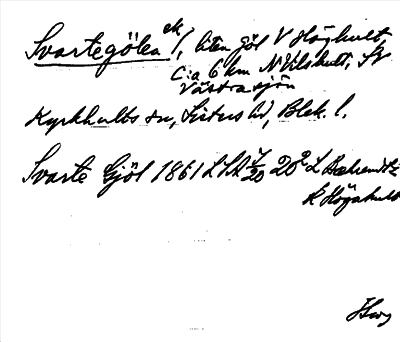 Svartegölen ek /, liten göl V Höghult,
C:a 6 km N Vilshult, SV
Västrasjön
Kyrkhults sn, Listers hd, Blek. l.
Svarte Gjöl 1861 LSA 20² L
R Högahult